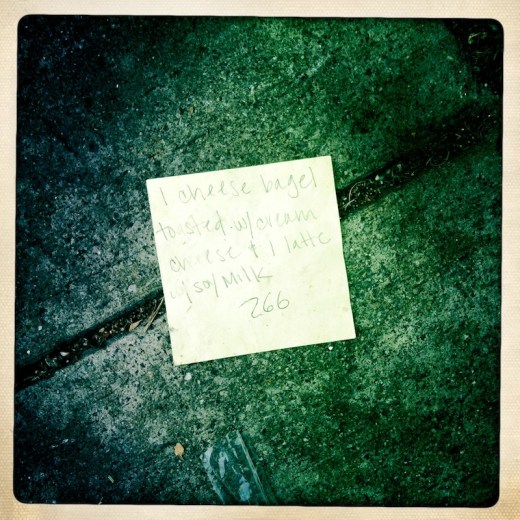 1 cheese bagel
toasted w/cream
cheese & 1 latte
w/soy Milk
266